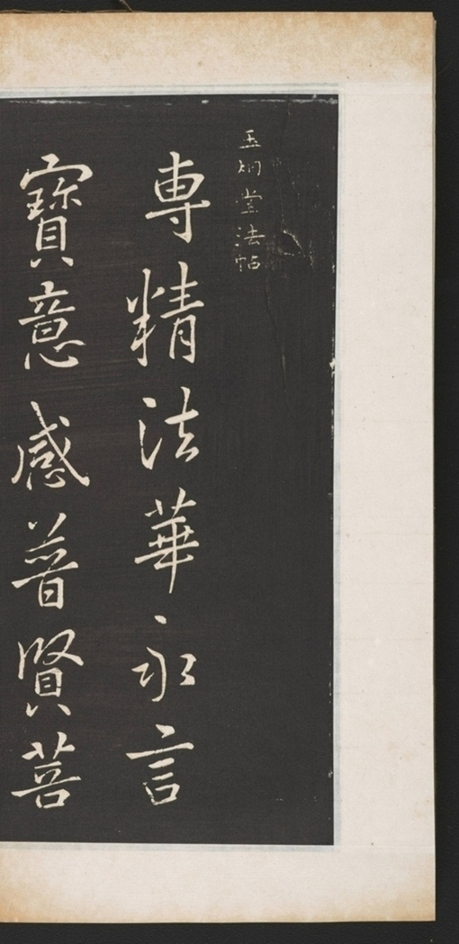 玉烟堂法帖
專精法華永言
寶意感普賢菩